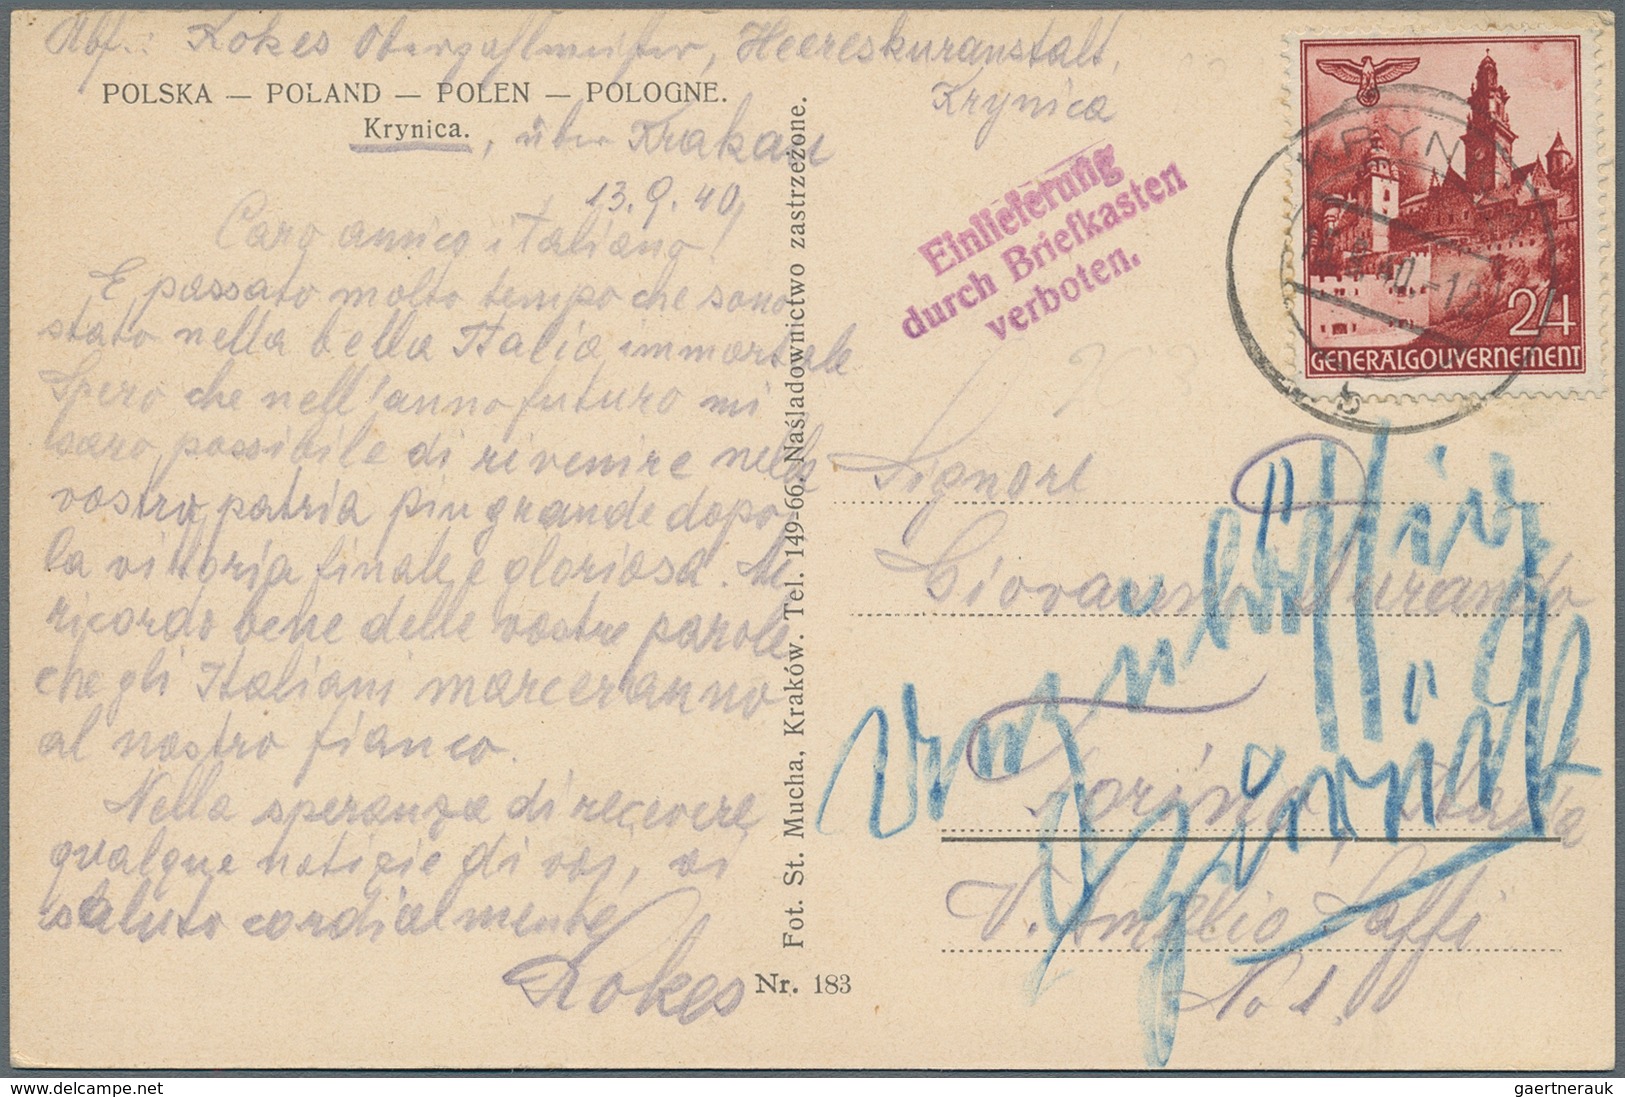 Abf.: Kokes Oberzahlmeister, Heereskuranstalt,
Krynica
POLSKA — POLAND — POLEN — POLOGNE.
Krynica. , über Krakau
13.9.40
Caro amico italiano!
E passato molto tempo che sono
stato nella bella Italia immortale
Spero che nell'anno futuro mi
saro possibile di rivenire nella
vostra patria piu grande dopo
la vittoria finale e gloriosa. Mi
ricordo bene delle vostre parole
che gli Italiani marceranno
al nostro fianco.
Nella speranza di recevere
qualque notizie di voi, vi
saluto cordialmente
Kokes
Fot. St. Mucha, Kraków. Tel. 149-66. Naśladownictwo zastrzeżone.
Nr. 183
Einlieferung
durch Briefkasten
verboten.
KRYNICA
40.-12
24
GENERALGOUVERNEMENT
Signore
Giovanni Durando
Torino, Italia
V. Amelio Saffi
No 1.
unzulässig
zurück
gaertnerauk
www.delcampe.net